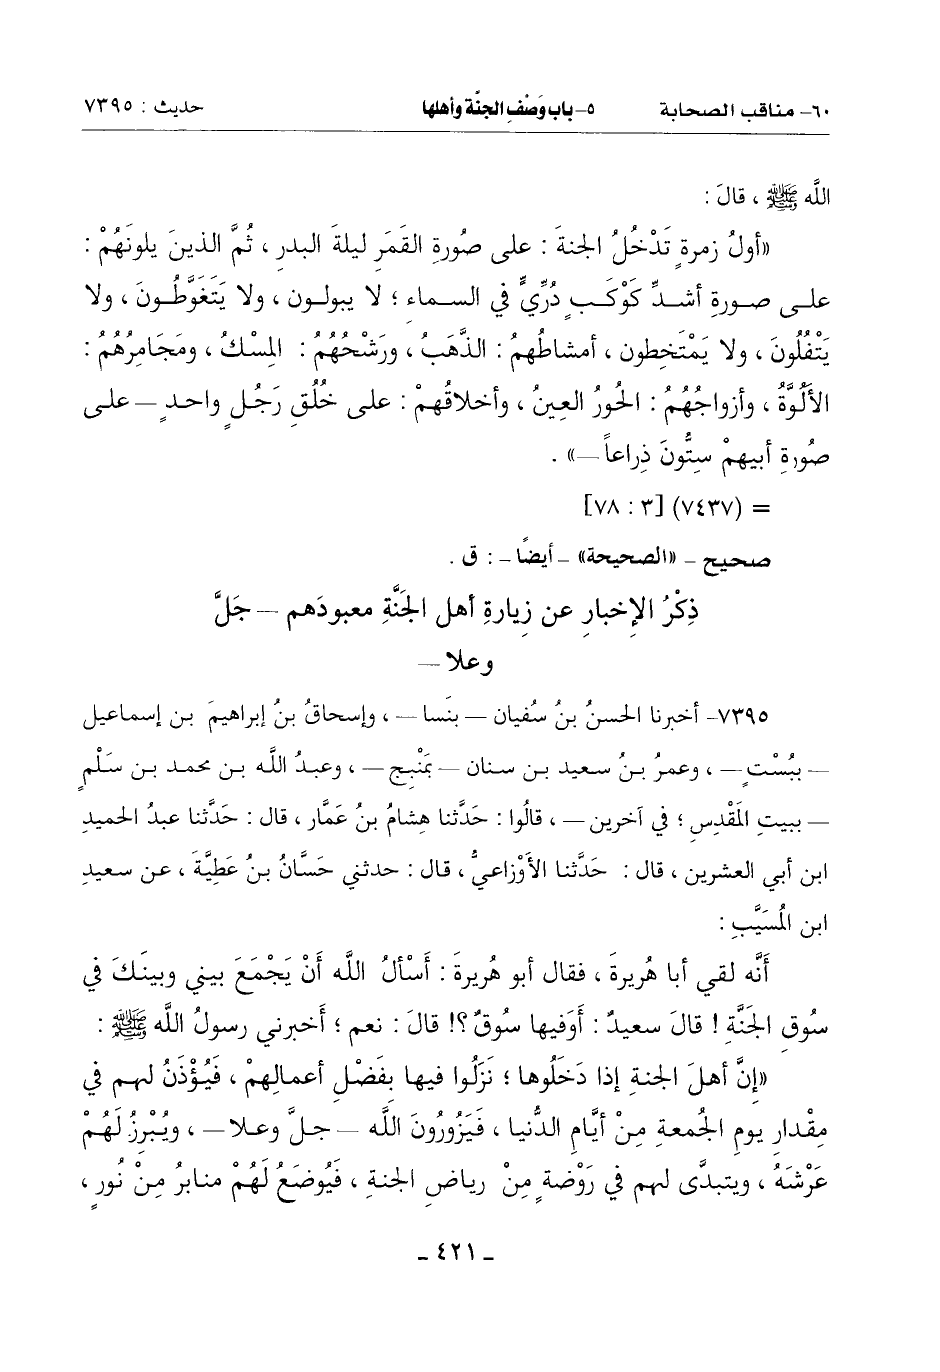 ٦٠- مناقب الصحابة ٥- باب وَصْفِ الجنَّة وأهلها حديث : ٧٣٩٥
اللَّه ﷺ ، قالَ :
«أولُ زمرةٍ تَدْخُلُ الجنةَ : على صُورةِ القَمَرِ ليلةَ البدرِ ، ثُمَّ الذينَ يلونَهُمْ :
على صورةِ أشدِّ كَوْكَبٍ دُرِّيٍّ في السماءِ ؛ لا يبولون ، ولا يَتَغَوَّطُونَ ، ولا
يَتْفُلُونَ ، ولا يَمْتَخِطون ، أمشاطُهمُ : الذَّهَبُ ، ورَشْحُهُمُ : المِسْكُ ، ومَجَامِرُهُمُ :
الأَلُوَّةُ ، وأزواجُهُمُ : الحُورُ العِينُ ، وأخلاقُهمْ : على خُلُقِ رَجُلٍ واحدٍ —على
صُورةِ أبيهمْ ستُّونَ ذِراعاً—» .
= (٧٤٣٧) [٣ : ٧٨]
صحيح - «الصحيحة» - أيضًا - : ق .
ذِكْرُ الإخبارِ عن زِيارةِ أهل الجَنَّةِ معبودَهم —جَلَّ
وعلا—
٧٣٩٥- أخبرنا الحسنُ بنُ سُفيان —بنَسا— ، وإسحاقُ بنُ إبراهيمَ بن إسماعيل
—ببُسْتٍ— ، وعمرُ بنُ سعيد بن سنان —بمَنْبِج— ، وعبدُ اللَّه بن محمد بن سَلْمٍ
—ببيتِ المَقْدِسِ ؛ في آخرين— ، قالُوا : حَدَّثنا هِشامُ بنُ عَمَّار ، قال : حَدَّثنا عبدُ الحميدِ
ابن أبي العشرين ، قال : حَدَّثنا الأَوْزاعيُّ ، قال : حدثني حَسَّانُ بنُ عَطِيَّةَ ، عن سعيدِ
ابن المُسَيَّبِ :
أنَّه لقي أبا هُريرةَ ، فقال أبو هُريرةَ : أَسْألُ اللَّه أَنْ يَجْمَعَ بيني وبينَكَ في
سُوقِ الجَنَّةِ ! قالَ سعيدٌ : أَوَفيها سُوقٌ ؟! قالَ : نعم ؛ أَخبرني رسولُ اللَّه ﷺ :
«إنَّ أهلَ الجنةِ إذا دَخَلُوها ؛ نزَلُوا فيها بفَضْلِ أعمالِهمْ ، فَيُؤْذَنُ لهم في
مِقْدارِ يومِ الجُمعةِ مِنْ أيَّامِ الدُّنيا ، فَيَزُورُونَ اللَّه —جلَّ وعلا— ، ويُبْرِزُ لَهُمْ
عَرْشَهُ ، ويتبدَّى لهم في رَوْضةٍ مِنْ رياضِ الجنةِ ، فَيُوضَعُ لَهُمْ منابرُ مِنْ نُورٍ ،
- ٤٢١ -